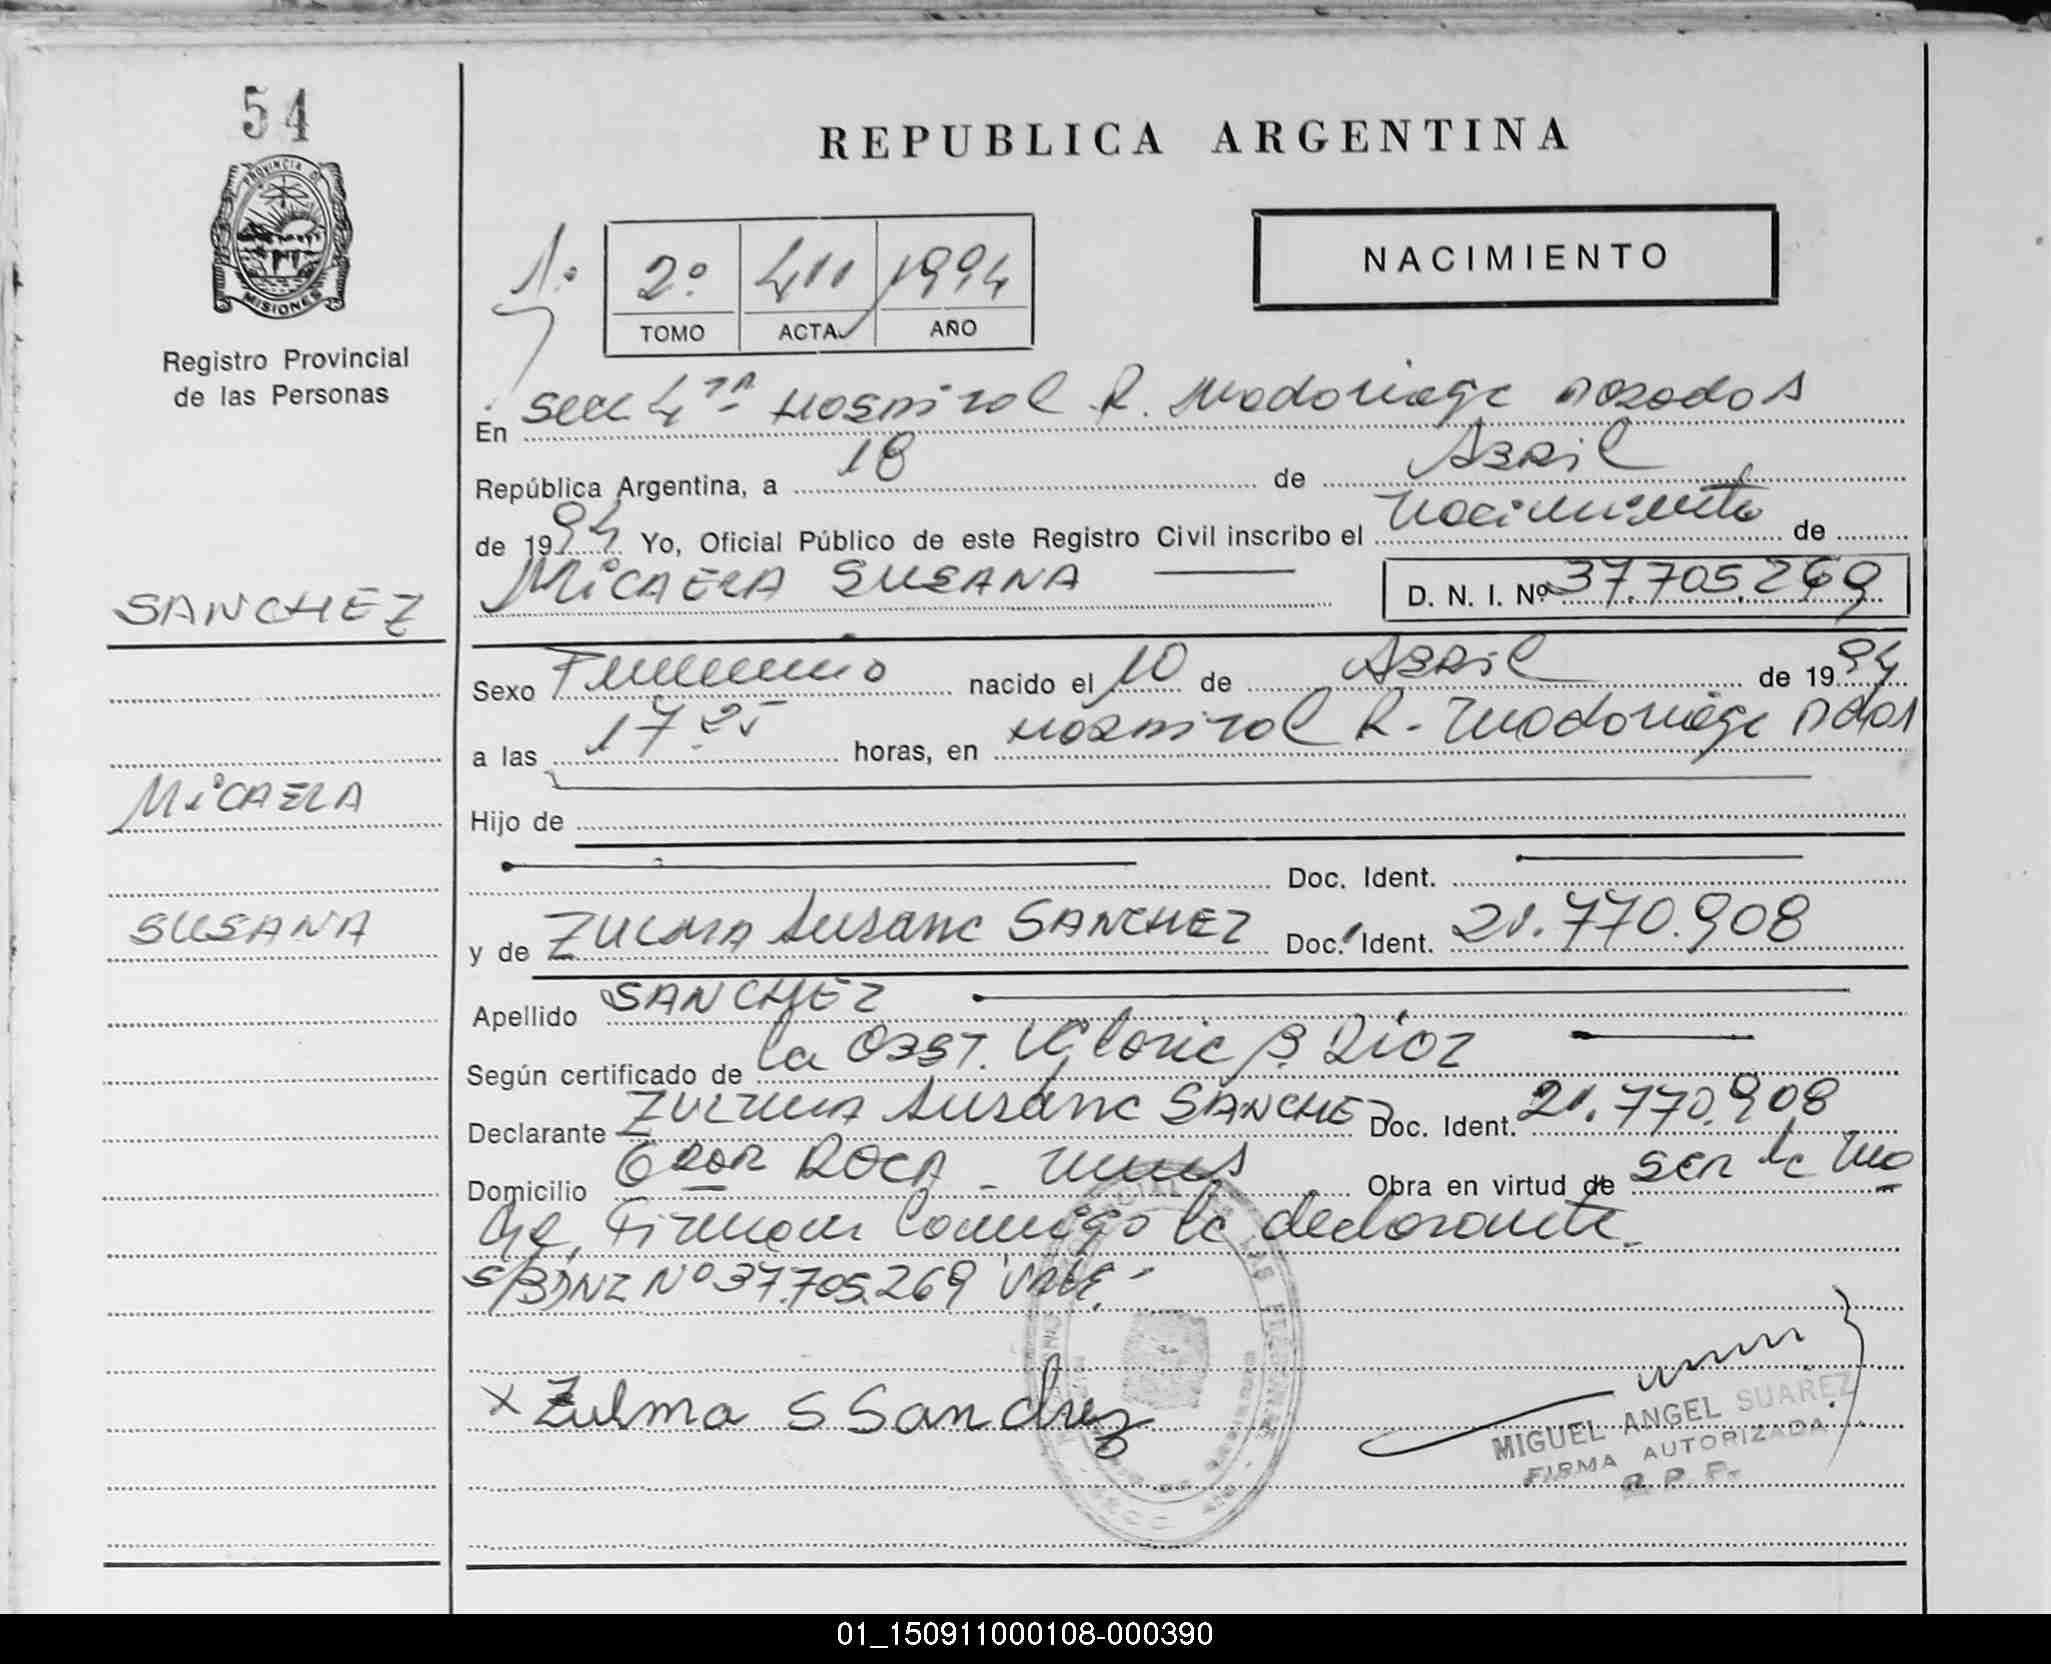 54
PROVINCIA DE
MISIONES
Registro Provincial
de las Personas
REPUBLICA ARGENTINA
NACIMIENTO
1º 2º 411 1994
TOMO ACTA AÑO
En Secc 4ta Hospital R. Madariaga Posadas
República Argentina, a 18 de Abril
de 1994 Yo, Oficial Público de este Registro Civil inscribo el Nacimiento de
MICAELA SUSANA D. N. I. Nº 37.705.269
SANCHEZ
Sexo Femenino nacido el 10 de Abril de 1994
a las 17 25 horas, en Hospital R. Madariaga Pdas
MICAELA
Hijo de
Doc. Ident.
SUSANA
y de ZULMA Susana SANCHEZ Doc. Ident. 21.770.908
Apellido SANCHEZ
Según certificado de la OBST. Gloria B. Diaz
Declarante ZULMA Susana SANCHEZ Doc. Ident. 21.770.908
Domicilio Gral ROCA - Mnes Obra en virtud de ser la Ma
dre, Firman Conmigo la declarante.
S/B DNI Nº 37.705.269 VALE.-
x Zulma S Sanchez
MIGUEL ANGEL SUAREZ
FIRMA AUTORIZADA
R. P. P.
01_150911000108-000390